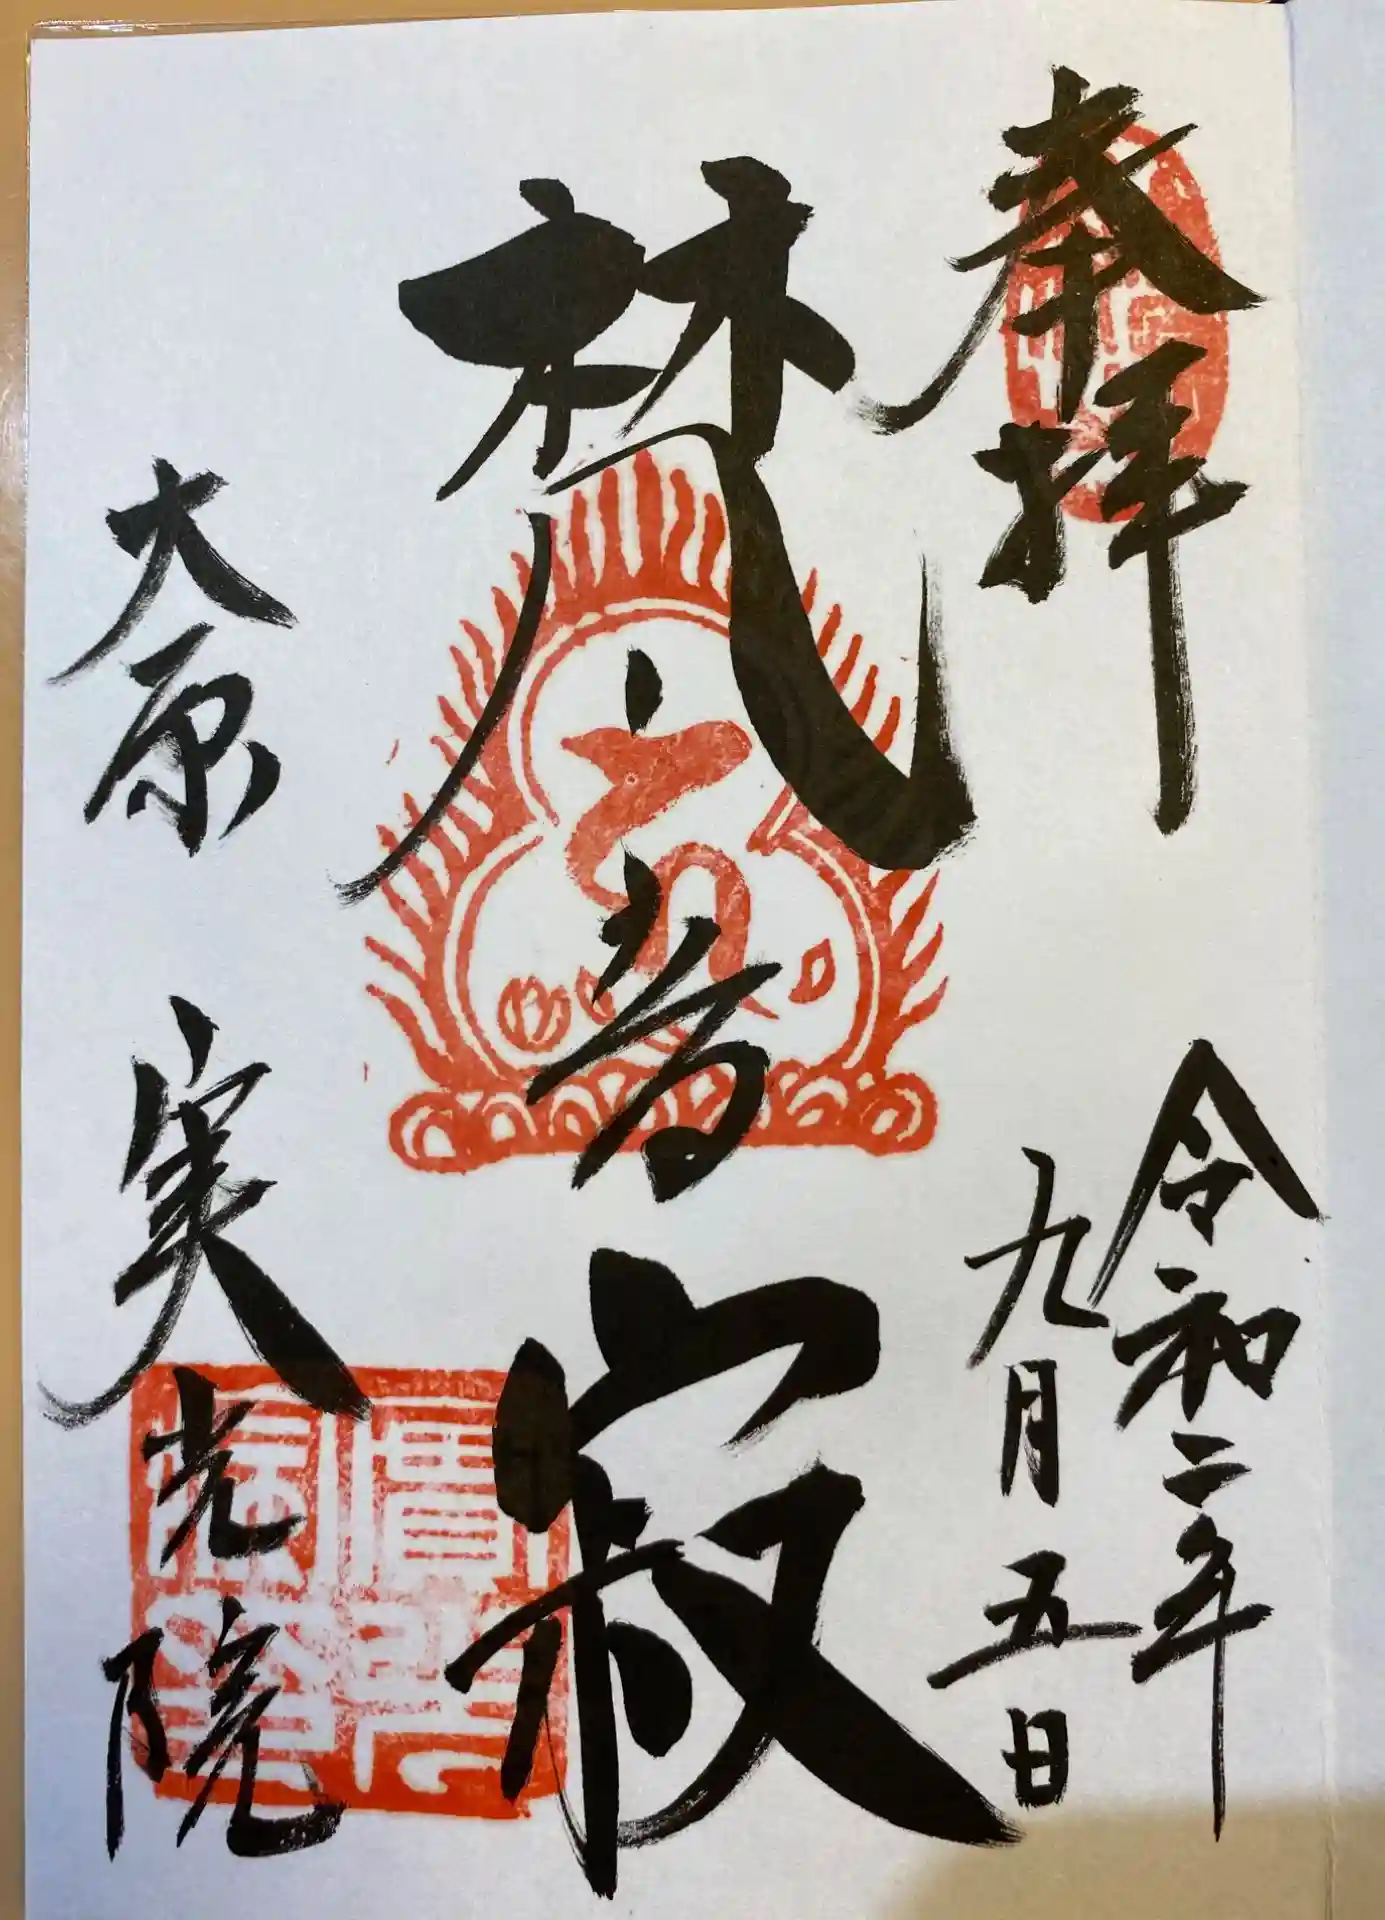 奉拝
令和二年
九月五日
梵音寂
大原 実光院